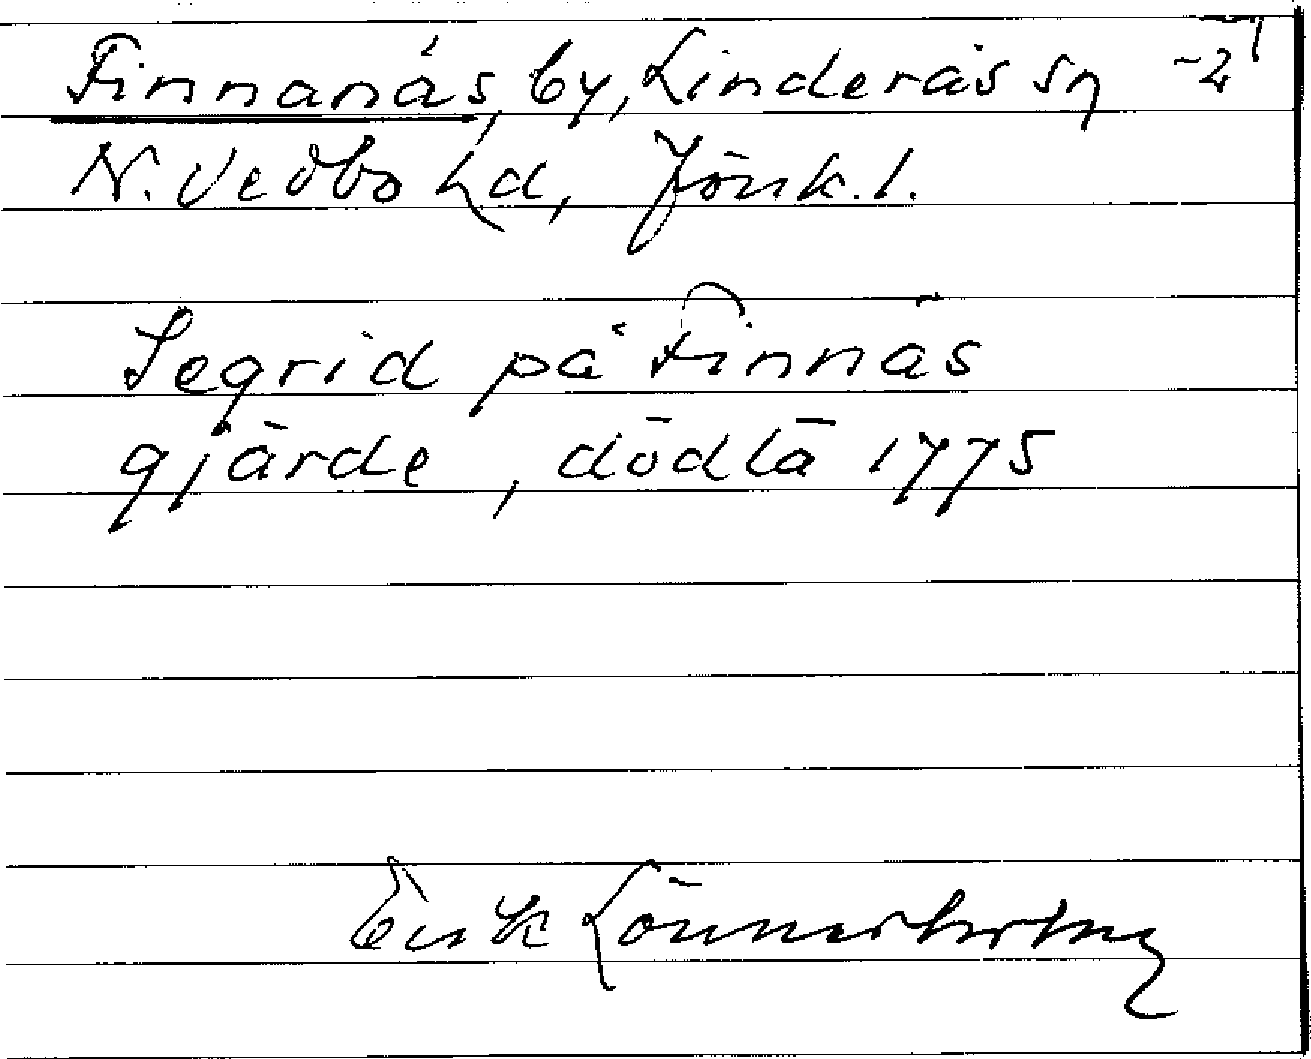 Finnanäs, by, Linderås sn -2
N. Vedbo hd, Jönk. l.
Segrid på Finnäs
gjärde, dödlä 1775
Erik Lönnerholm